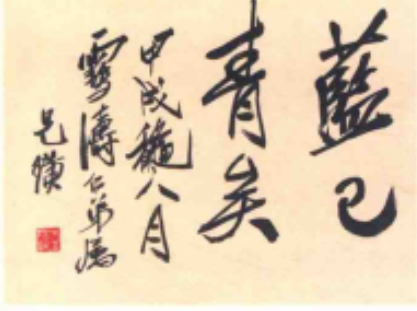 藍已
青矣
甲戌穐八月
雪濤仁弟屬
兄璜